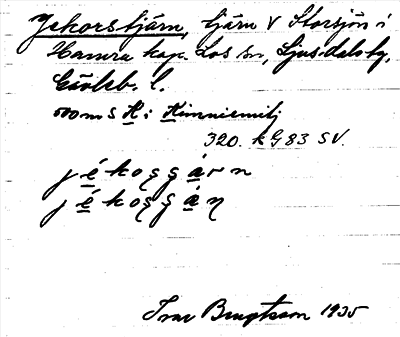 Jekorstjärn, tjärn V Storsjön i
Hamra kap. Los sn, Ljusdals tg,
Gävleb. l.
500 m S H i Kinniemitj
320. k G 83 SV.
jékoggärn
jékoggän
Ivar Bengtsson 1935